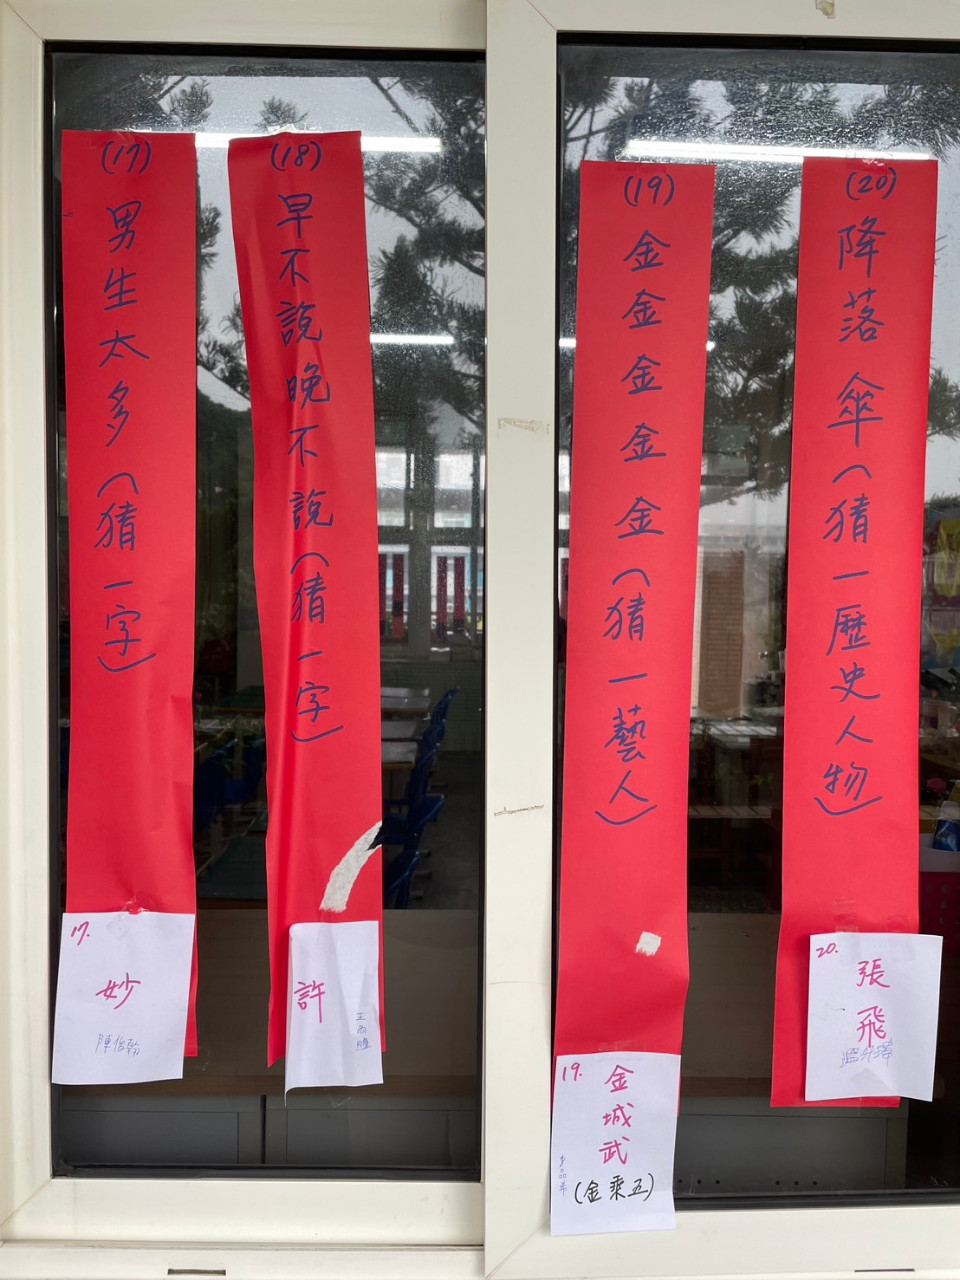 (17)男生太多(猜一字)
17.
妙
陳信翰
(18)早不說晚不說(猜一字)
許
(19)金金金金金(猜一藝人)
19.
金城武
(金乘五)
(20)降落傘(猜一歷史人物)
20.
張飛